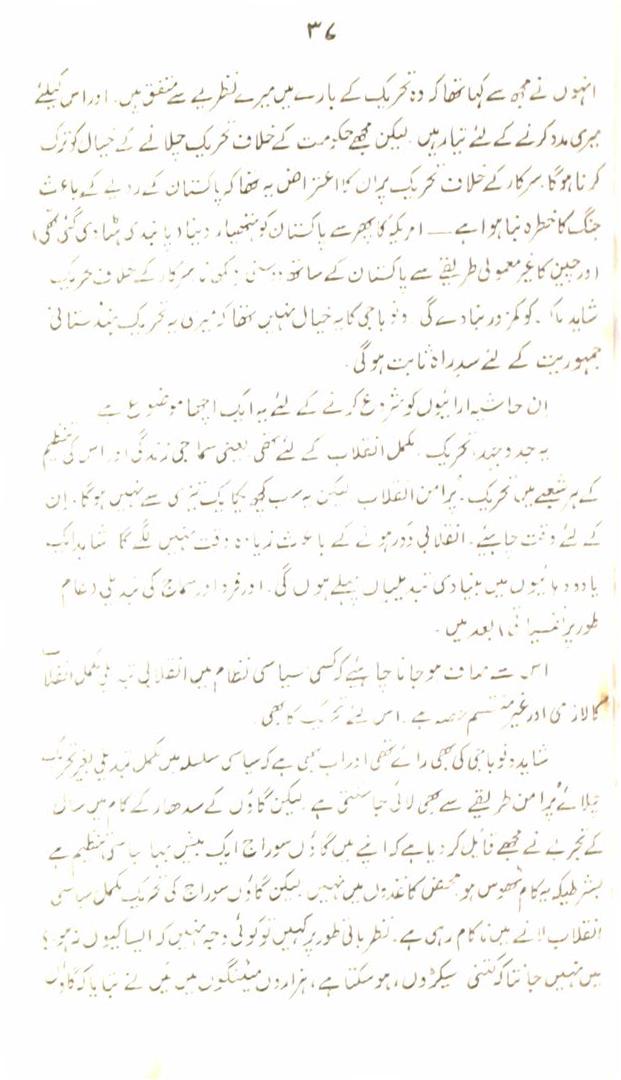 ۳۶
انہوں نے مجھ سے کہا تھا کہ وہ تحریک کے بارے میں میرے نظریے سے متفق ہیں۔ اور اس کیلئے
میری مدد کرنے کے لئے تیار ہیں۔ لیکن مجھے حکومت کے خلاف تحریک چلانے کے خیال کو ترک
کرنا ہوگا۔ سرکار کے خلاف تحریک پر ان کا اعتراض یہ تھا کہ پاکستان کے رویے کے باعث
جنگ کا خطرہ بنا ہوا ہے — امریکہ کا پھر سے پاکستان کو ہتھیار دینا (پابندی ہٹا دی گئی تھی)
اور چین کا غیر معمولی طریقے سے پاکستان کے ساتھ دوستی رکھنا سرکار کے خلاف تحریک
شاید ملک کو کمزور بنا دے گی ونوباجی کا یہ خیال نہیں تھا کہ میری یہ تحریک ہندستانی
جمہوریت کے لئے سدِ راہ ثابت ہوگی۔
ان حاشیہ ارائیوں کو شروع کرنے کے لئے یہ ایک اچھا موضوع ہے
یہ جدوجہد، تحریک مکمل انقلاب کے لئے تھی یعنی سماجی زندگی اور اس کی تنظیم
کے ہر شعبے میں تحریک۔ پُرامن انقلاب لیکن یہ سب کچھ یکایک تیزی سے نہیں ہوگا۔ ان
کے لئے وقت چاہیئے۔ انقلابی دَور ہونے کے باعث زیادہ وقت نہیں لگے گا شاید ایک
یا دو دہائیوں میں بنیادی تبدیلیاں پہلے ہوں گی۔ اور فرد اور سماج کی تبدیلی (عام
طور پر نفسیاتی) بعد میں۔
اس سے صاف ہو جانا چاہیئے کہ کسی سیاسی نظام میں انقلابی تبدیلی مکمل انقلاب
کا لازمی اور غیر منقسم حصہ ہے۔ اس لئے تحریک کا بھی
شاید ونوباجی کی بھی رائے تھی اور اب بھی ہے کہ سیاسی سلسلہ میں مکمل تبدیلی بغیر تحریک
چلائے پُرامن طریقے سے بھی لائی جا سکتی ہے لیکن گاؤں کے سدھار کے کام میں سال
کے تجربے نے مجھے قائل کر دیا ہے کہ اپنے میں گاؤں سوراج ایک بیش بہا سیاسی تنظیم ہے
بشرطیکہ یہ کام ٹھوس ہو محض کاغذوں میں نہیں لیکن گاؤں سوراج کی تحریک مکمل سیاسی
انقلاب لانے میں ناکام رہی ہے۔ نظریاتی طور پر کہیں تو کوئی وجہ نہیں کہ ایسا کیوں نہ ہو؟
میں نہیں جانتا کہ کتنی سیکڑوں، ہو سکتا ہے، ہزاروں میٹنگوں میں میں نے بتایا کہ گاؤں